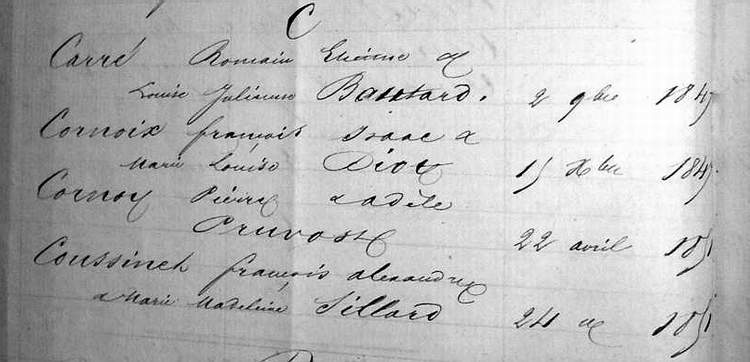 C
Carré Romain Etienne &
Louise Julienne Bastard. 2 9bre 184
Cornoix françois isaac &
Marie Louise Diot 15 Xbre 184
Cornoy Pierre & adèle
Pruvost 22 avril 185
Coussinet françois alexandre
& Marie Madeleine Sillard 24 185